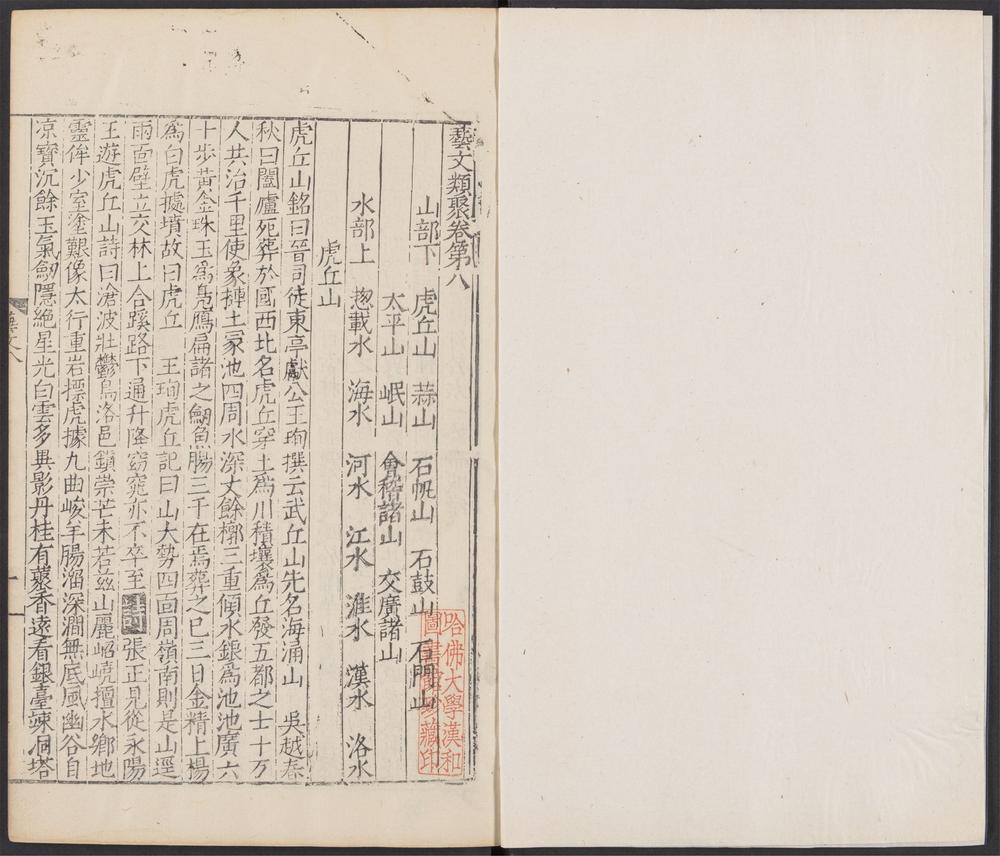 藝文類聚卷第八
山部下　虎丘山　蒜山　石帆山　石鼓山　石門山
太平山　岷山　會稽諸山　交廣諸山
水部上　揔載水　海水　河水　江水　淮水　漢水　洛水
虎丘山
虎丘山銘曰晉司徒東亭獻公王珣撰云武丘山先名海涌山　吳越春
秋曰闔廬死葬於國西北名虎丘穿土爲川積壤爲丘發五都之士十万
人共治千里使象摙土冢池四周水深丈餘槨三重傾水銀爲池池廣六
十步黃金珠玉爲鳧鴈扁諸之劒魚腸三千在焉葬之已三日金精上楊
爲白虎據墳故曰虎丘　王珣虎丘記曰山大勢四面周嶺南則是山逕
兩面壁立交林上合蹊路下通升降窈窕亦不卒至　張正見從永陽
王遊虎丘山詩曰滄波壯鬱島洛邑鎮崇芒未若茲山麗岧嶢擅水鄉地
靈侔少室塗艱像太行重岩摽虎據九曲峻羊腸溜深澗無底風幽谷自
凉寶沉餘玉氣劒隱絶星光白雲多異影丹桂有藂香遠看銀臺竦洞塔
哈佛大學漢和
圖書館珍藏印